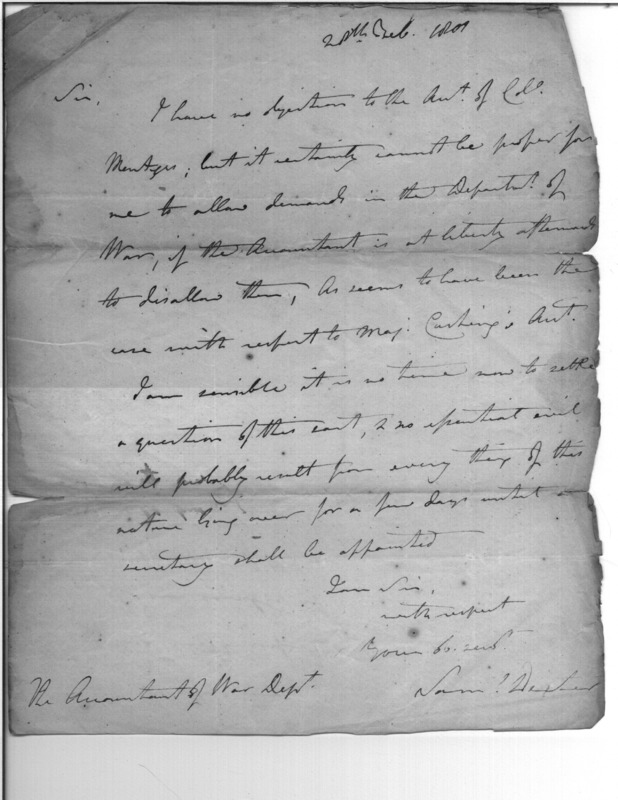 28th Feb. 1801
Sir,
I have no objections to the Acct. of Colo.
Mentges; but it certainly cannot be proper for
me to allow demands in the Departmt. of
War, if the Accountant is at liberty afterwards
to disallow them, As seems to have been the
case with respect to Maj. Cushing's Acct.
I am sensible it is no time now to settle
a question of this sort, & no essential evil
will probably result from every thing of this
nature lying over for a few days until a
secretary shall be appointed
I am Sir,
with respect
Your ob. servt.
Saml. Dexter
The Accountant of War Dept.